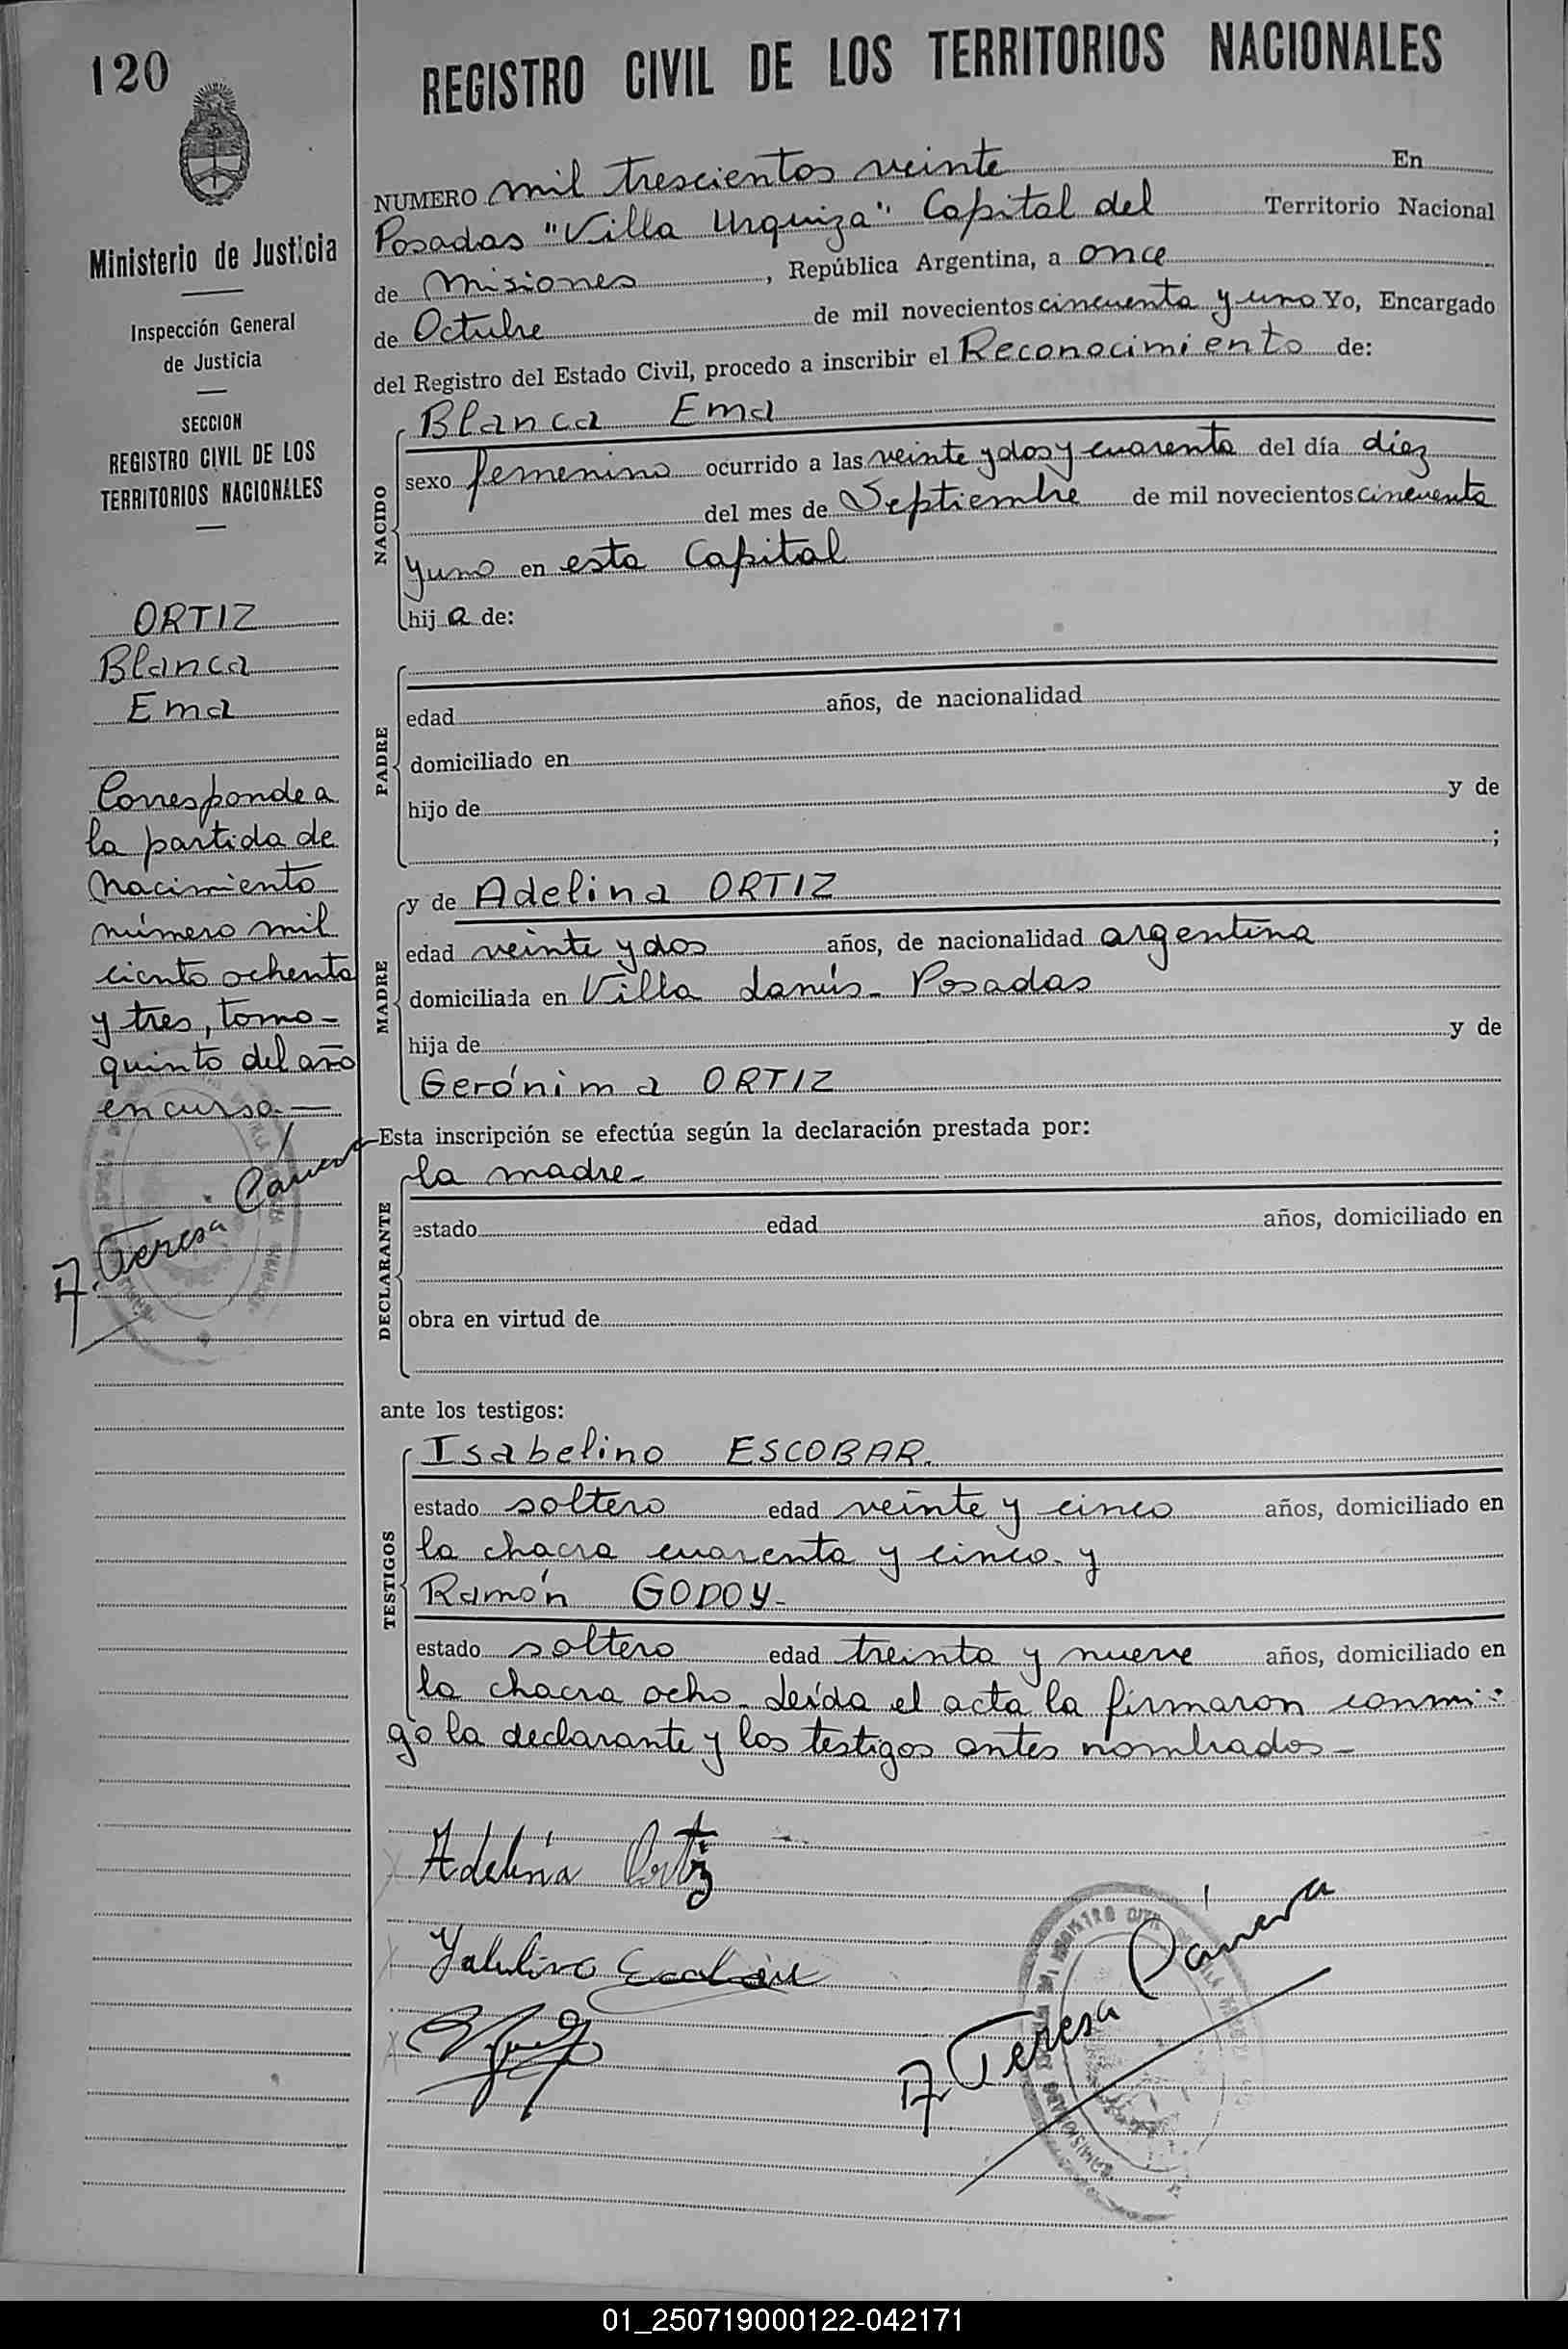 120
REGISTRO CIVIL DE LOS TERRITORIOS NACIONALES
Ministerio de Justicia
Inspección General
de Justicia
SECCION
REGISTRO CIVIL DE LOS
TERRITORIOS NACIONALES
ORTIZ
Blanca
Ema
Corresponde a
la partida de
nacimiento
número mil
ciento ochenta
y tres, tomo-
quinto del año
en curso.—
A. Teresa
NUMERO mil trescientos veinte En
Posadas "Villa Urquiza" Capital del Territorio Nacional
de Misiones, República Argentina, a once
de Octubre de mil novecientos cincuenta y uno Yo, Encargado
del Registro del Estado Civil, procedo a inscribir el Reconocimiento de:
NACIDO
Blanca Ema
sexo femenino ocurrido a las veinte y dos y cuarenta del día diez
del mes de Septiembre de mil novecientos cincuenta
y uno en esta Capital
hij a de:
PADRE
edad años, de nacionalidad
domiciliado en
hijo de y de
;
MADRE
y de Adelina ORTIZ
edad veinte y dos años, de nacionalidad argentina
domiciliada en Villa Lanús - Posadas
hija de y de
Gerónima ORTIZ
Esta inscripción se efectúa según la declaración prestada por:
DECLARANTE
la madre-
estado edad años, domiciliado en
obra en virtud de
ante los testigos:
TESTIGOS
Isabelino ESCOBAR.
estado soltero edad veinte y cinco años, domiciliado en
la chacra cuarenta y cinco. y
Ramón GODOY-
estado soltero edad treinta y nueve años, domiciliado en
la chacra ocho. Leída el acta la firmaron conmi-
go la declarante y los testigos antes nombrados-
Adelina Ortiz
A. Teresa
01_250719000122-042171